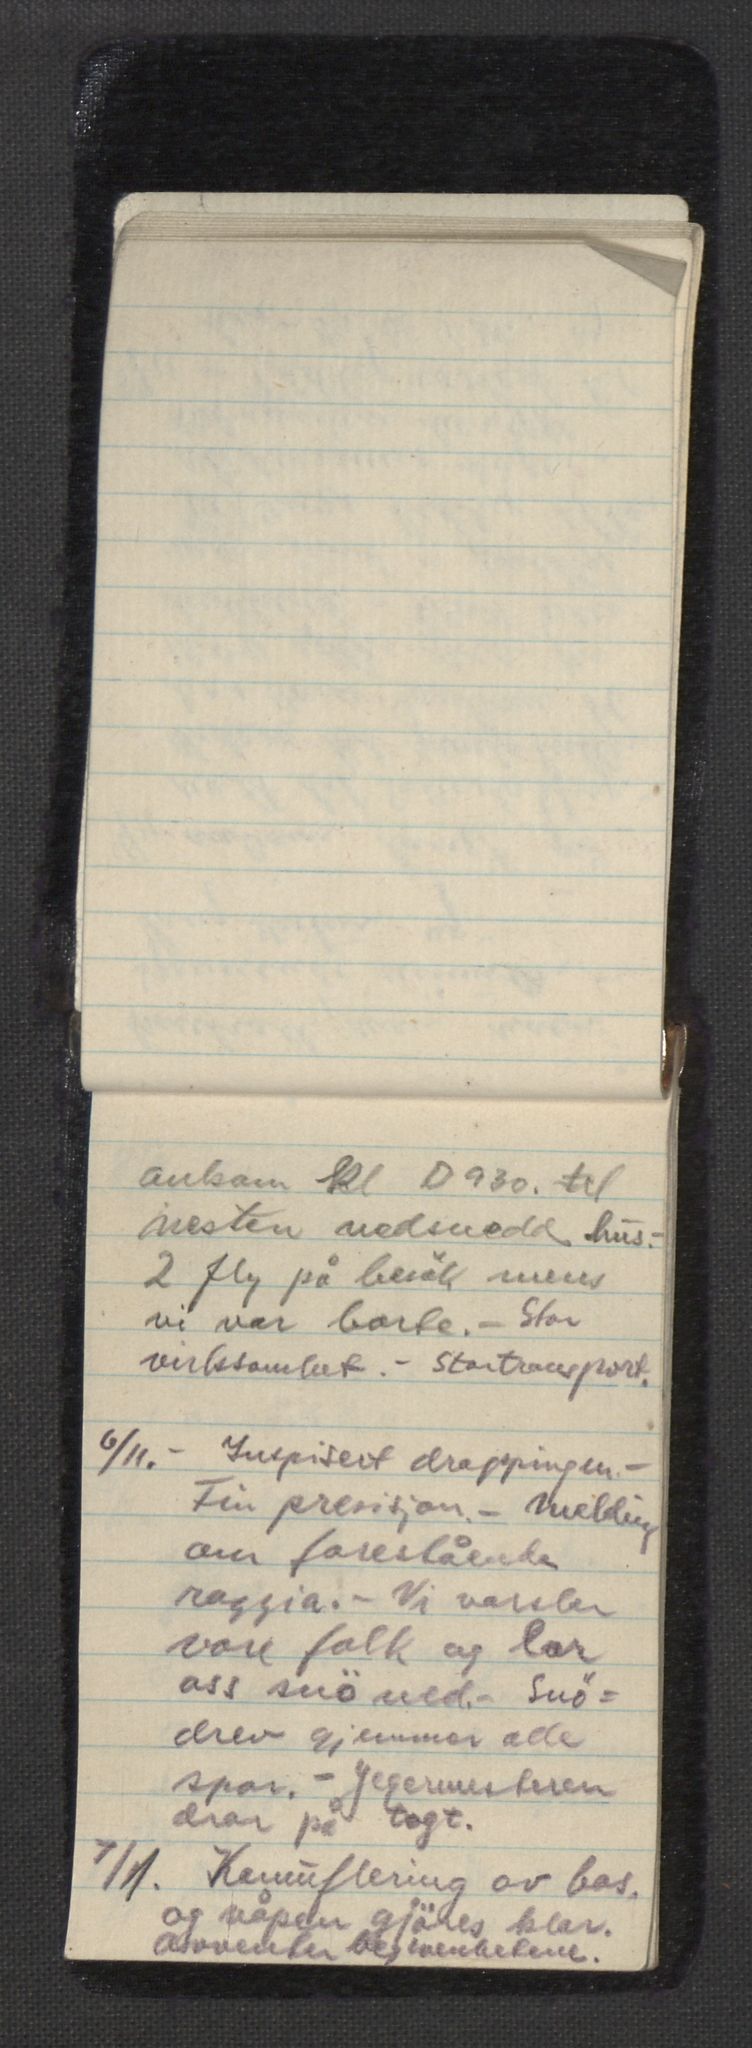 ankom kl 0930. til
nesten nedsnedd hus.-
2 fly på besök mens
vi var borte.- Stor
virksomhet.- Stortransport.
6/11.- Inspisert droppingen.-
Fin presisjon.- Melding
om forestående
razzia.- Vi varsler
våre folk og lar
oss snö ned.- Snö=
drev gjemmer alle
spor.- Jegermesteren
drar på togt.
7/11. Kamuflering av bas.
og våpen gjöres klar.
Avventer begivenhetene.